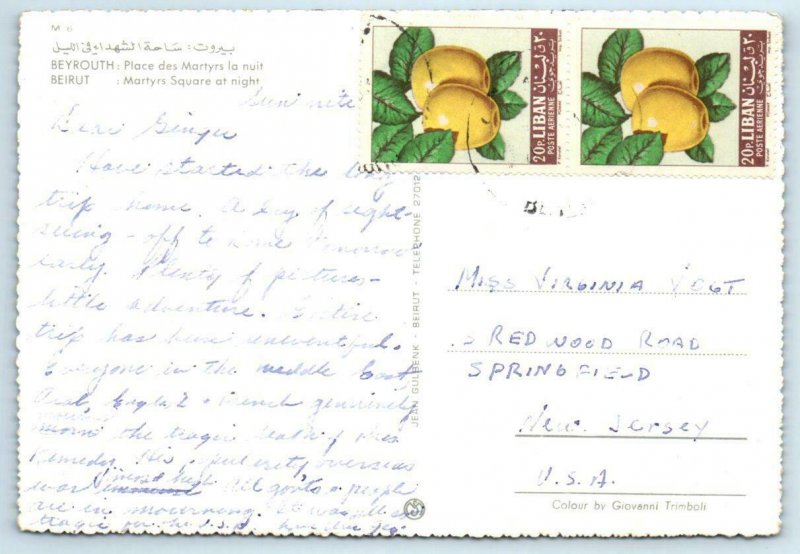 M 6
بيروت: ساحة الشهداء في الليل
BEYROUTH : Place des Martyrs la nuit
BEIRUT : Martyrs Square at night
Sun nite
Dear Ginger
Have started the long
trip home. A day of sight-
seeing - off to Rome tomorrow
early. Plenty of pictures-
little adventure. Entire
trip has been uneventful.
Everyone in the middle East
genuinely
the tragic death of Pres
Kennedy. His popularity overseas
was most high All gov'ts & people
are in mourning. It was all so
tragic for the U.S.A.
JEAN GULBENK - BEIRUT - TELEPHONE 27012
20P. LIBAN لبنان ٢٠ ق
POSTE AERIENNE بريد جوي
20P. LIBAN لبنان ٢٠ ق
POSTE AERIENNE بريد جوي
MISS VIRGINIA VOGT
5 REDWOOD ROAD
SPRINGFIELD
New Jersey
U.S.A.
Colour by Giovanni Trimboli